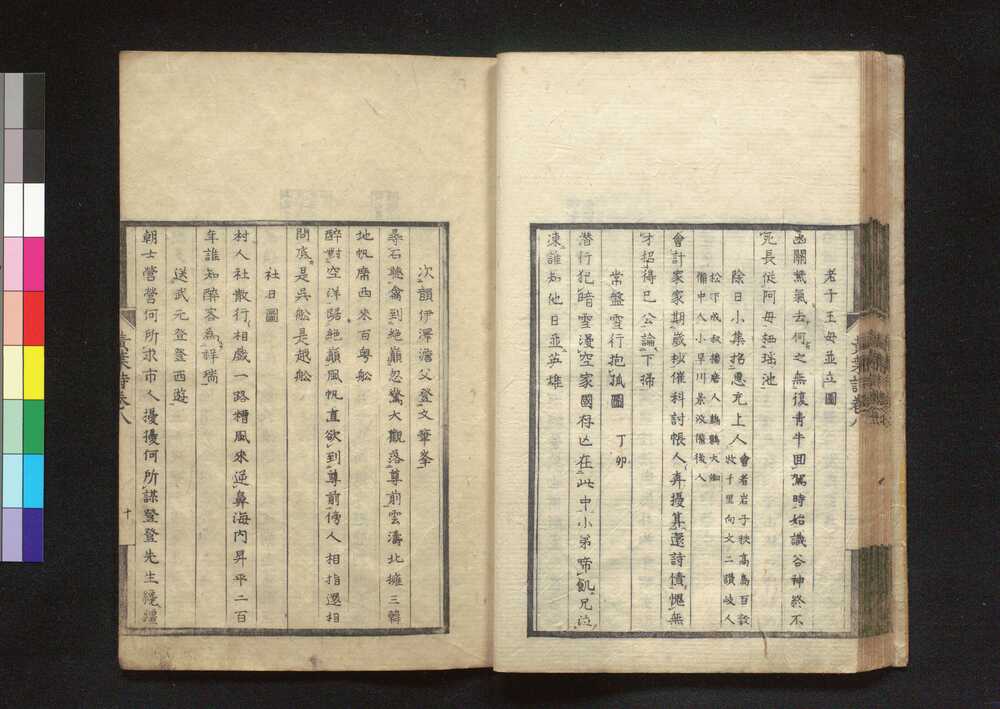 老子王母並立圖
函關紫氣去何之無復青牛回駕時始識谷神終不
死長從阿母醉瑤池
除日小集拈惠充上人會者岩子秩高島百設
松下成叔播磨人鵜鷀大㓜牧千里向文二讃岐人
備中人小早川景汲備後人
會計家家期歲抄催科討帳人奔擾算還詩債愧無
才招得已公論下掃
常盤雪行抱孤圖 丁卯
潛行犯暗雪漫空家國存亡在此中小弟啼飢兄泣
凍誰知他日並英雄
黃葉詩卷八
次韻伊澤澹父登文筆峯
尋石聽禽到絕巔忽驚大觀落尊前雲濤北擁三韓
地帆席西來百粤舩
醉對空洋踞絕巔風帆直欲到尊前傍人相指還相
問底是吳舩是越舩
社日圖
村人社散行相戲一路糟風來逆鼻海內昇平二百
年誰知醉客為祥瑞
送武元登登西遊
朝士營營何所求市人擾擾何所謀登登先生
黃葉詩卷八
十